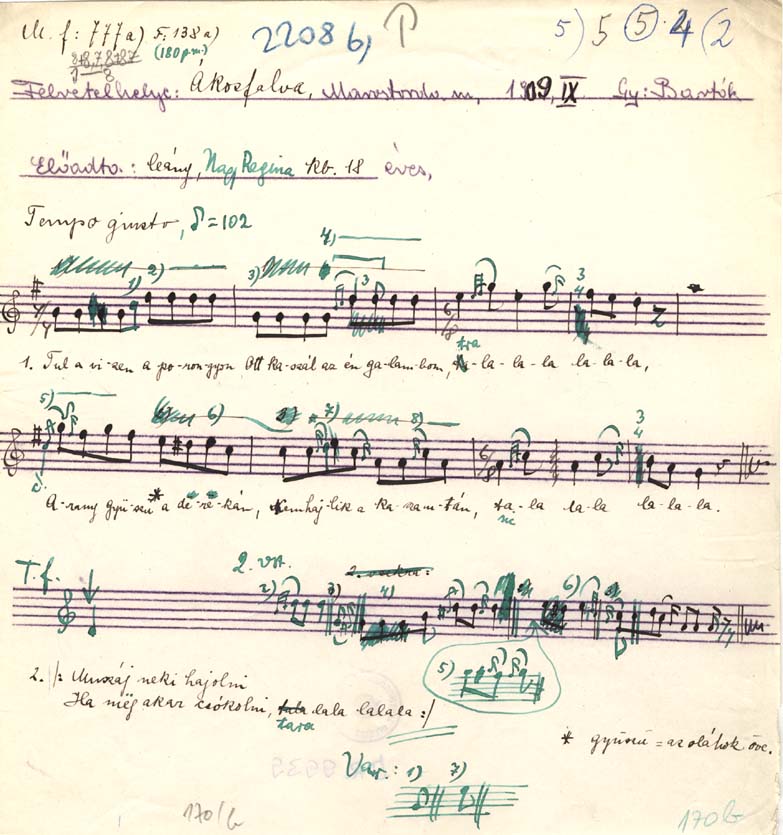 M. f: 777a) F. 138a) 2208 b) P 5) 5 5. 2 4 (2
8+8, 7, 8+87 (180 p.m.)
Felvételhelye: Ákosfalva, Marostorda m, 1909, IX Gy: Bartók
Előadta: leány, Nagy Regina kb. 18 éves,
Tempo giusto, = 102
4)
1) 2) 3) 3 3/4
6/8
1. Tul a vi-zen a po-ron-gyon Ott ka-szál az én ga-lam-bom, tra-la-la-la la-la-la,
5) 6) 7) 8) 3/4
6/8
A-rany gyü-szü * a de-re-kán, Nem haj-lik a ka-szam-tán, ta-la la-la la-la-la.
T. f. 2. vsz.
2) 3) 4) 6)
5)
2. /: Muszáj neki hajolni
Ha még akar csókolni, lala lalala :/
tara
* gyüszü = az oláhok öve.
Var.: 1) 7)
170/b 170 b